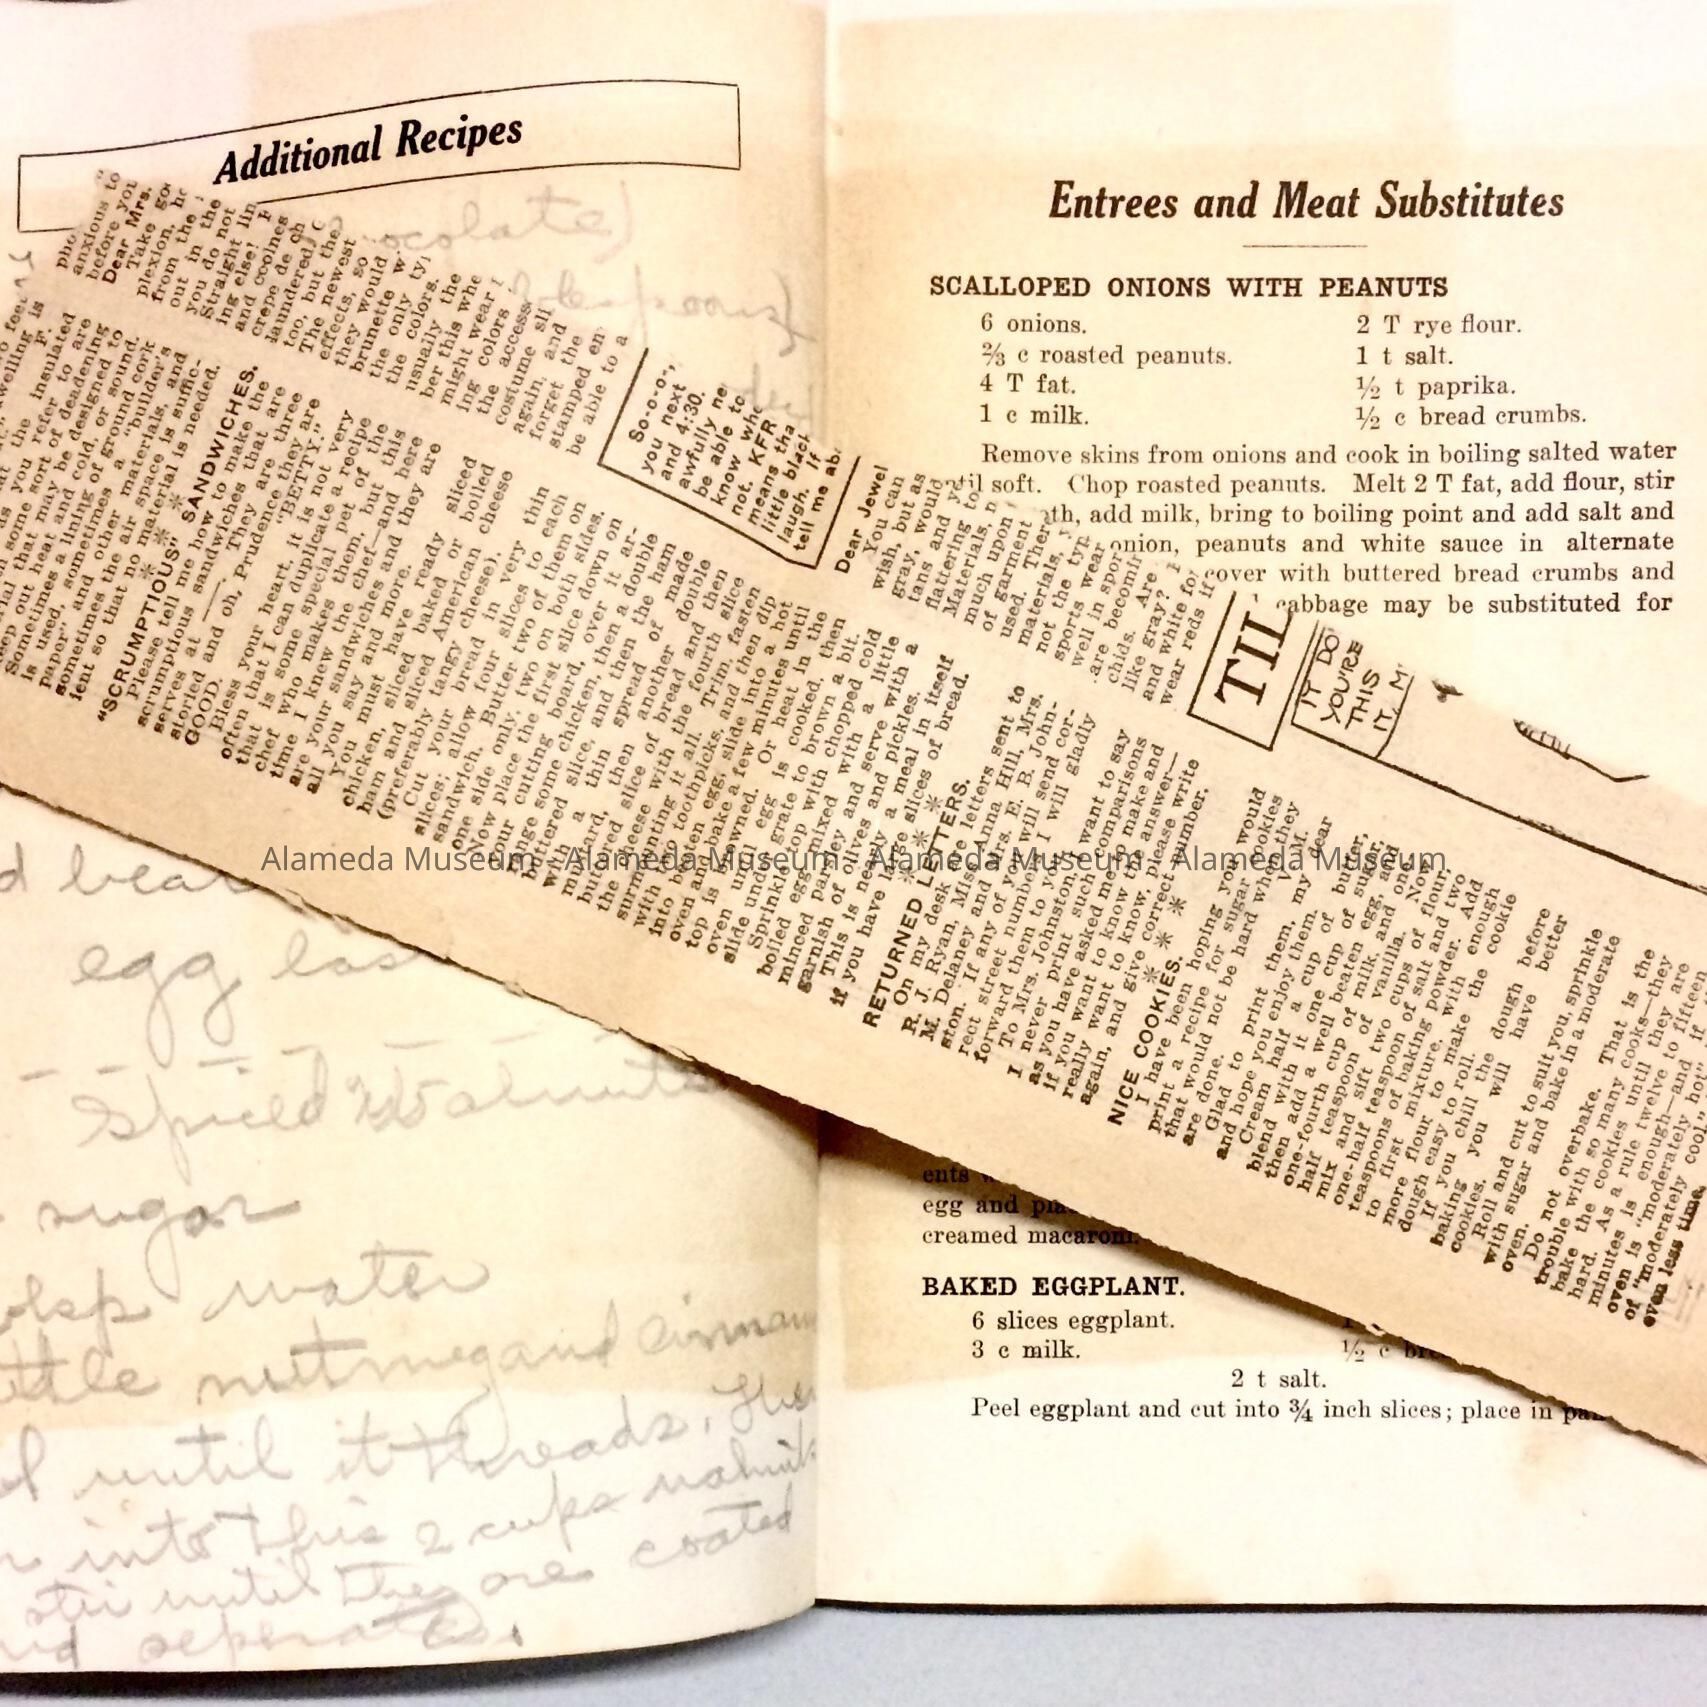 Additional Recipes
ocolate)
egg
Spiced Walnuts
sugar
water
nutmeg and cinnam
until it threads.
into this 2 cups walnut
stir until they are coated
separate.
Entrees and Meat Substitutes
SCALLOPED ONIONS WITH PEANUTS
6 onions.
⅔ c roasted peanuts.
4 T fat.
1 c milk.
2 T rye flour.
1 t salt.
½ t paprika.
½ c bread crumbs.
Remove skins from onions and cook in boiling salted water
til soft. Chop roasted peanuts. Melt 2 T fat, add flour, stir
th, add milk, bring to boiling point and add salt and
onion, peanuts and white sauce in alternate
cover with buttered bread crumbs and
cabbage may be substituted for
ents
egg and pla
creamed macaroni.
BAKED EGGPLANT.
6 slices eggplant.
3 c milk.
½ c bre
2 t salt.
Peel eggplant and cut into ¾ inch slices; place in pan
anxious to
before you
Dear Mrs.
the insulated
you refer to are
some sort of deadening
that may be designed to
out heat and cold, or sound.
Sometimes a lining of ground cork
is used, sometimes a "builder's
paper" and other materials, and
sometimes the air space is suffic-
ient so that no material is needed.
"SCRUMPTIOUS" SANDWICHES.
Please tell me how to make the
scrumptious sandwiches that are
serves at ——. They are three
storied and oh, Prudence they are
GOOD. "BETTY."
Bless your heart, it is not very
often that I can duplicate a recipe
that is some special pet of the
chef who makes them, but this
time I knew the chef—and here
are your sandwiches and they are
all you say and more.
You must have ready sliced
chicken, sliced baked or boiled
ham and sliced American cheese
(preferably tangy cheese).
Cut your bread in very thin
slices; allow four slices to each
sandwich. Butter two of them on
one side only, two on both sides.
Now place the first slice down on
your cutting board, over it ar-
range some chicken, then a double
buttered slice, and then the ham
with a thin spread of made
mustard, then another double
buttered slice of bread and then
the cheese with the fourth slice
surmounting it all. Trim, fasten
with two toothpicks, and then dip
into beaten egg, slide into a hot
oven and bake a few minutes until
top is browned. Or heat in the
oven until egg is cooked, then
slide under grate to brown a bit.
Sprinkle top with chopped cold
boiled egg mixed with a little
minced parsley and serve with a
garnish of olives and pickles.
This is nearly a meal in itself
if you have large slices of bread.
RETURNED LETTERS.
On my desk are letters sent to
R. J. Ryan, Miss Anna Hill, Mrs.
M. Delaney and Mrs. E. B. John-
ston. If any of you will send cor-
rect street number I will gladly
forward them to you.
To Mrs. Johnston, I want to say
I never print such comparisons
as you have asked me to make and
if you want to know the answer—
really want to know, please write
again, and give correct number.
NICE COOKIES.
I have been hoping you would
print a recipe for sugar cookies
that would not be hard when they
are done. V. M.
Glad to print them, my dear
and hope you enjoy them.
Cream half a cup of butter,
blend with it one cup of sugar,
then add a well beaten egg, and
one-fourth cup of milk, and one-
half teaspoon of vanilla. Now
mix and sift two cups of flour,
one-half teaspoon of salt and two
teaspoons of baking powder. Add
to first mixture, with enough
more flour to make the cookie
dough easy to roll.
If you chill the dough before
baking you will have better
cookies.
Roll and cut to suit you, sprinkle
with sugar and bake in a moderate
oven.
Do not overbake. That is the
trouble with so many cooks—they
bake the cookies until they are
hard. As a rule twelve to fifteen
minutes is enough—and if
oven is "moderately hot"
of "moderately cool"
even less time.
Take
plexion,
from the
out in the
you do not
Straight lin
ing else!
and coolness
crepe de ch
laundered,
too, but the
The newest
effects, so
they would
brunette
the only
the colors.
usually the
ber this whe
might wear
ing colors
the access
costume
again, and
forget the
stamped
be able to a
So-o-o-,
you next
and 4:30.
awfully ne
be able to
know whe
not. KFR
means tha
little black
laugh. If
tell me ab
Dear Jewel
You can
wish, but as
gray, would
tans and
flattering to
Materials,
much upon
of garment
used. There
materials,
not the typ
sports wear
well in sport
are becomin
chids. Are
like gray?
and white for
wear reds if
TIL
IT DO
YOU'RE
THIS
IT, M
Alameda Museum Alameda Museum Alameda Museum Alameda Museum